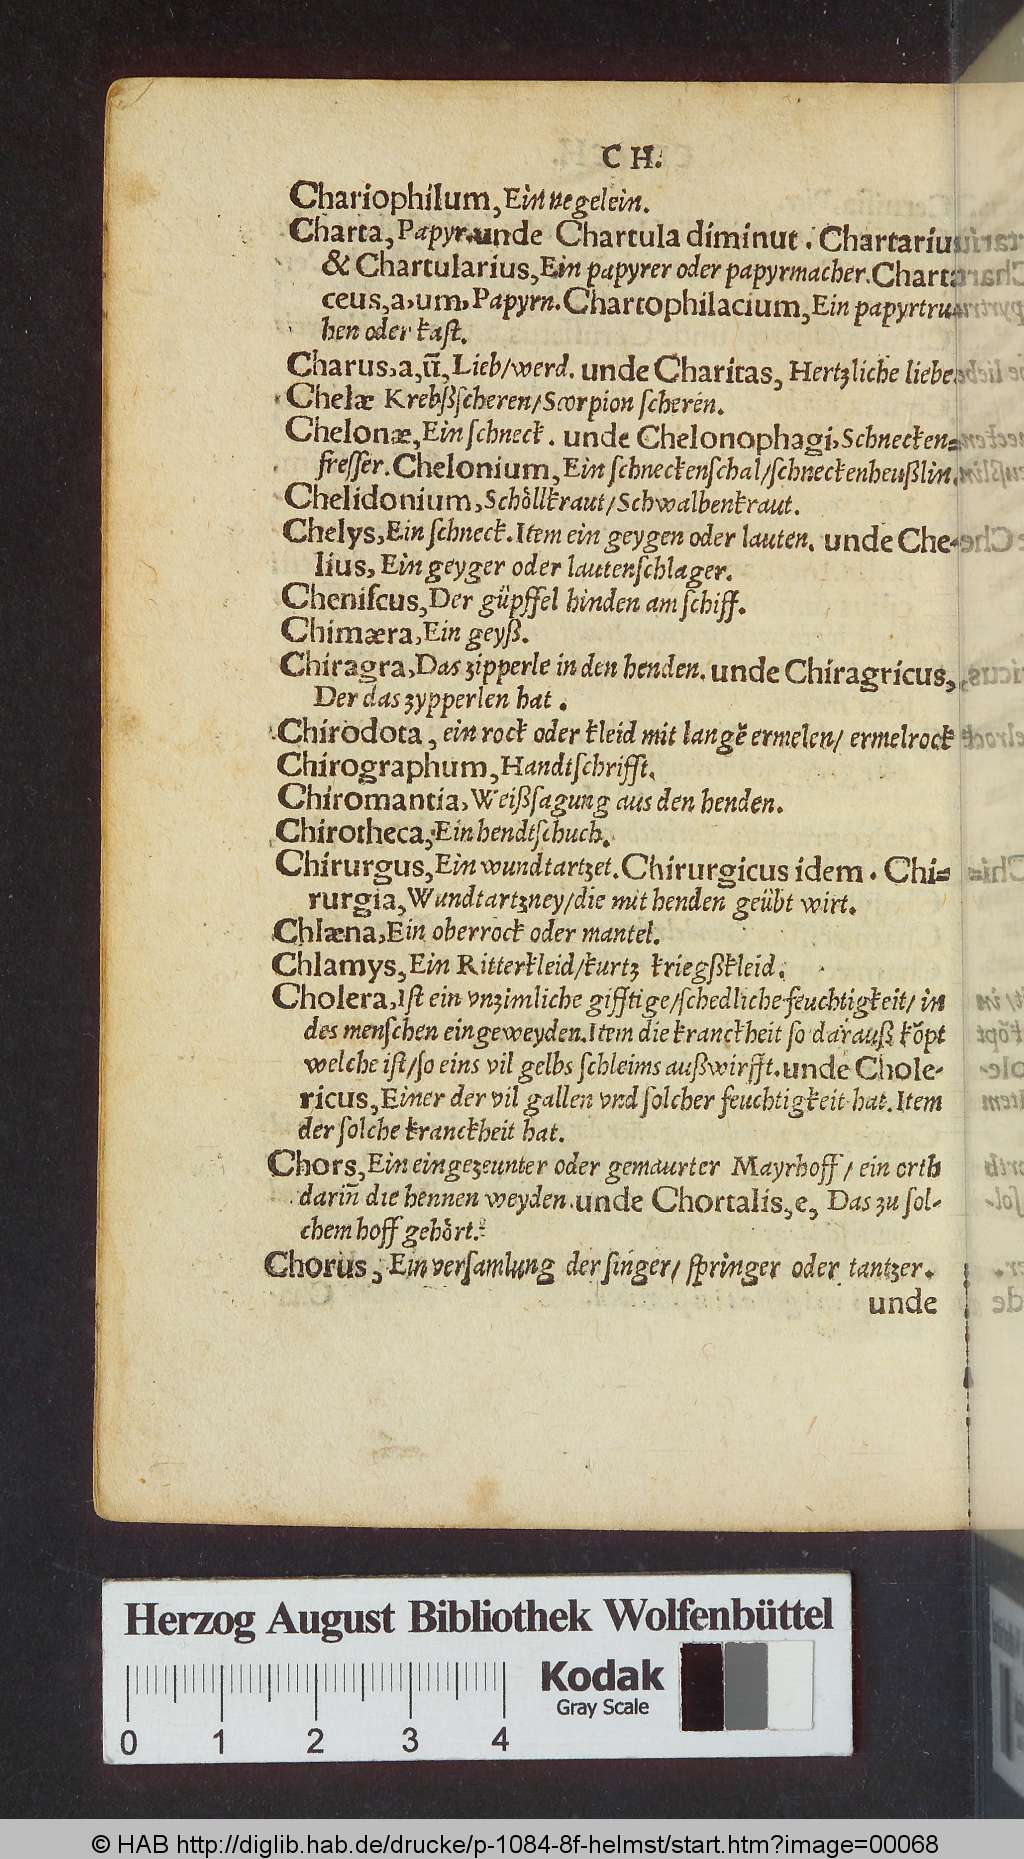 C H.
Chariophilum, Ein negelein.
Charta, Papyr. unde Chartula diminut. Chartarius
& Chartularius, Ein papyrer oder papyrmacher. Charta
ceus, a, um, Papyrn. Chartophilacium, Ein papyrtru-
hen oder kaſt.
Charus, a, ū, Lieb/werd. unde Charitas, Hertzliche liebe.
Chelæ Krebßſcheren/Scorpion ſcheren.
Chelonæ, Ein ſchneck. unde Chelonophagi, Schnecken=
freſſer. Chelonium, Ein ſchneckenſchal/ſchneckenheußlin.
Chelidonium, Schöllkraut/Schwalbenkraut.
Chelys, Ein ſchneck. Item ein geygen oder lauten. unde Che-
lius, Ein geyger oder lautenſchlager.
Cheniſcus, Der güpffel hinden am ſchiff.
Chimæra, Ein geyß.
Chiragra, Das zipperle in den henden. unde Chiragricus,
Der das zypperlen hat.
Chirodota, ein rock oder kleid mit langē ermelen/ ermelrock
Chirographum, Handtſchrifft.
Chiromantia, Weißſagung aus den henden.
Chirotheca, Ein hendtſchuch.
Chirurgus, Ein wundtartzet. Chirurgicus idem. Chi=
rurgia, Wundtartzney/die mit henden geübt wirt.
Chlæna, Ein oberrock oder mantel.
Chlamys, Ein Ritterkleid/kurtz kriegßkleid.
Cholera, Iſt ein vnzimliche gifftige/ſchedliche feuchtigkeit/ in
des menſchen eingeweyden. Item die kranckheit ſo darauß kōpt
welche iſt/ſo eins vil gelbs ſchleims außwirfft. unde Chole-
ricus, Einer der vil gallen vnd ſolcher feuchtigkeit hat. Item
der ſolche kranckheit hat.
Chors, Ein eingezeunter oder gemaurter Mayrhoff/ ein orth
dariñ die hennen weyden. unde Chortalis, e, Das zu ſol-
chem hoff gehört.
Chorus, Ein verſamlung der ſinger/ ſpringer oder tantzer.
unde
Herzog August Bibliothek Wolfenbüttel
Kodak
Gray Scale
0 1 2 3 4
© HAB http://diglib.hab.de/drucke/p-1084-8f-helmst/start.htm?image=00068